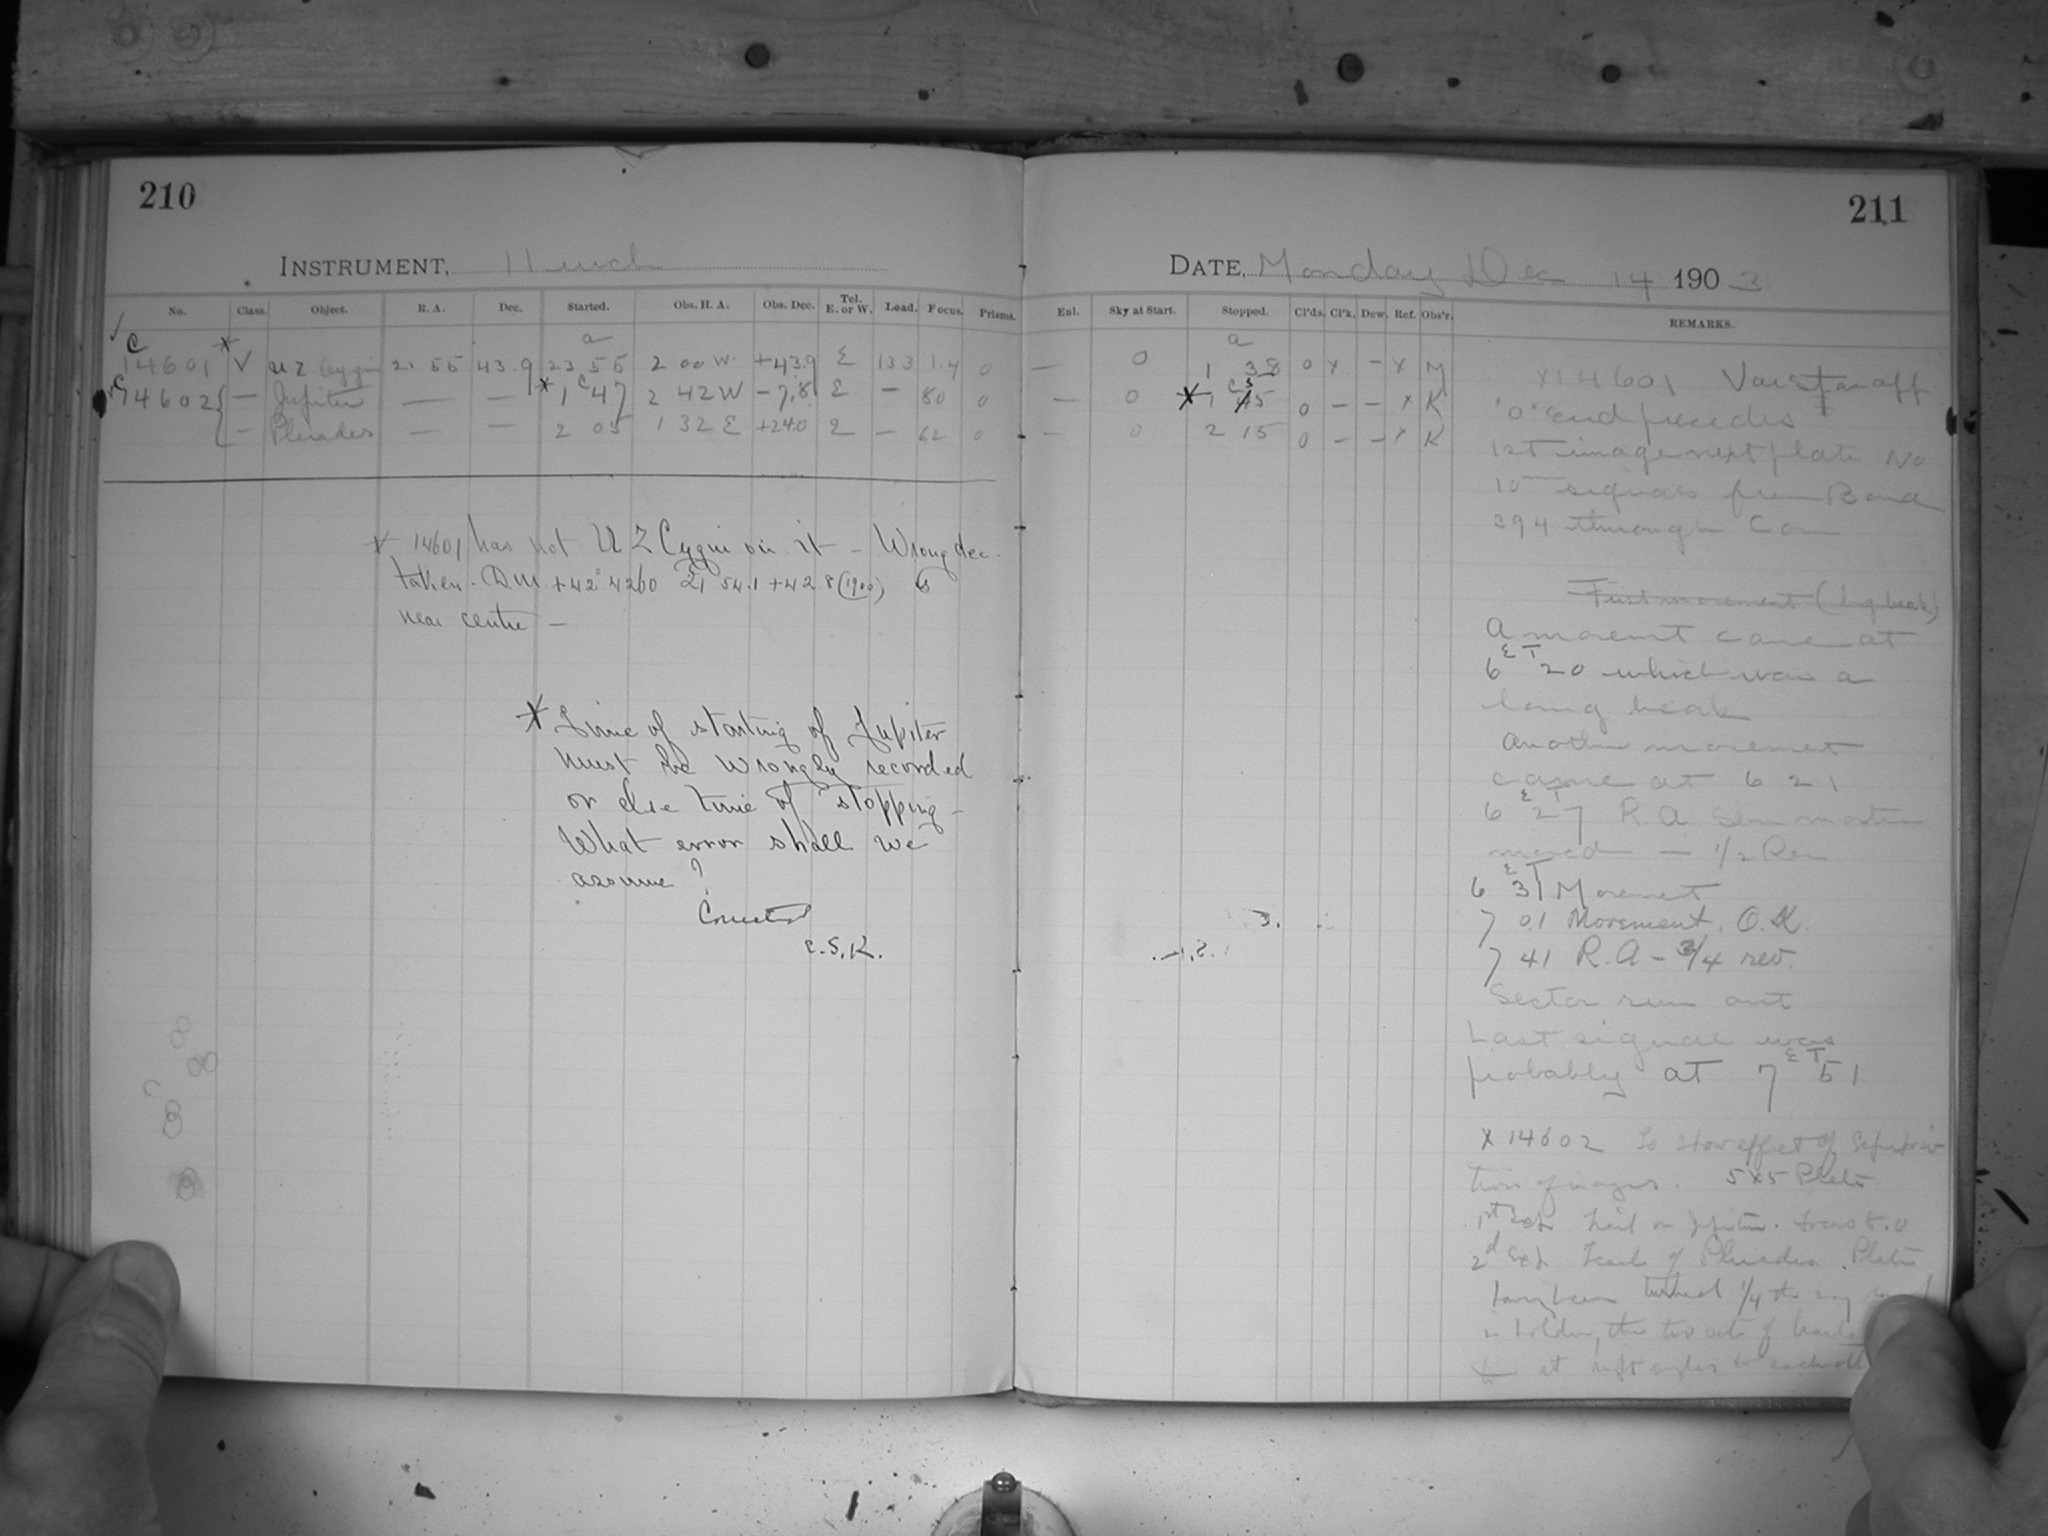 210
INSTRUMENT, 11 inch
No. Class. Object. R. A. Dec. Started. Obs. H. A. Obs. Dec. Tel. E. or W. Load. Focus. Prisms.
a
C 14601 * V UZ Cygni 21 55 43.9 23 55 2 00 W +43.9 E 133 1.4 0
C 14602 { — Jupiter — — * 1 C 47 2 42 W −7.8 E — 80 0
— Pleiades — — 2 05 1 32 E +24.0 E — 62 0
* 14601 has not UZ Cygni on it — Wrong dec.
taken. D.M. +42° 4260 21 54.1 +42 8 (1900) is
near centre —
* Time of starting of Jupiter
must be wrongly recorded
or else time of stopping —
What error shall we
assume?
Corrected
C.S.K.
211
DATE, Monday Dec 14 1903
Enl. Sky at Start. Stopped. Cl'ds. Cl'k. Dew. Ref. Obs'r. REMARKS.
a
— 0 1 38 0 x — x M
— 0 * 1 C 5 0 — — x K
— 0 2 15 0 — — x K
x 14601 Var star off
"0" end precedes
1st image next plate No
10 signals from Bond
394 through Com
First movement (long beak)
A movemt came at
6 ET 20 which was a
long beak
Another movement
came at 6 21
6 ET 27 R.A. Slow motion
moved — 1/2 Rev
6 ET 31 Movement
7 01 Movement. O.K.
7 41 R.A — 3/4 rev.
Sector run out
Last signal was
probably at 7 ET 51
x 14602 To show effect of
tion of images. 5x5 Plate
1st Exp. trail on Jupiter. Focus 8.0
2d Exp. Trails of Pleiades. Plate
having been turned 1/4 the way round
in holder, the two sets of trails
at right angles to each oth